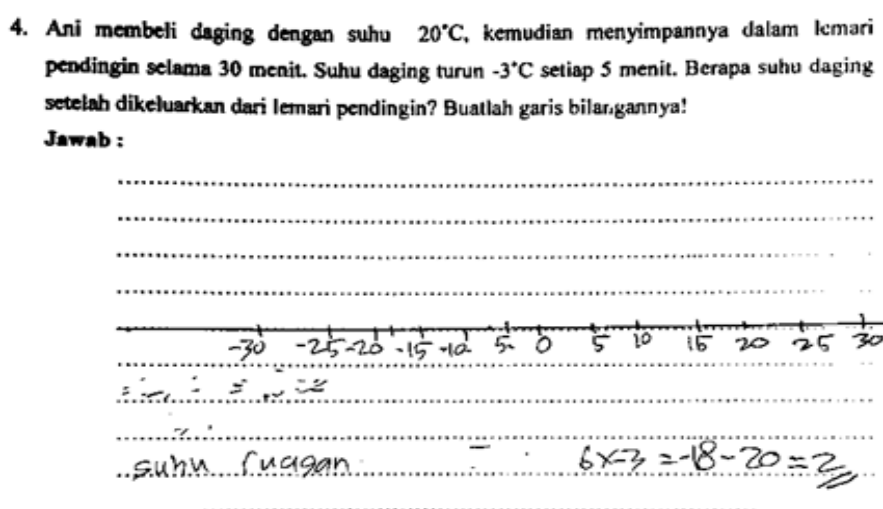 4. Ani membeli daging dengan suhu 20°C, kemudian menyimpannya dalam lemari
pendingin selama 30 menit. Suhu daging turun -3°C setiap 5 menit. Berapa suhu daging
setelah dikeluarkan dari lemari pendingin? Buatlah garis bilangannya!
Jawab :
-30 -25 -20 -15 -10 5- 0 5 10 15 20 25 30
suhu ruagan = 6x-3 = -18 - 20 = 2